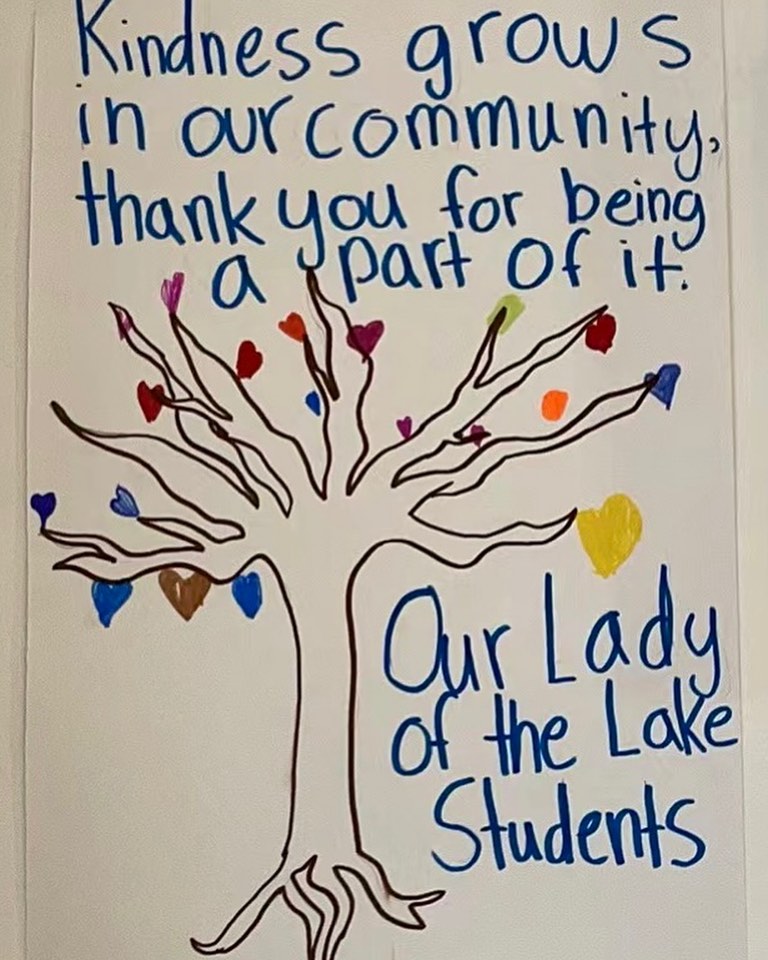 Kindness grows
in our community,
thank you for being
a part of it.
Our Lady
of the Lake
Students